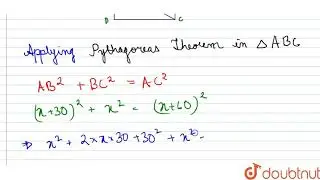 B C
Applying Pythagoreas Theorem in △ABC
AB² + BC² = AC²
(x+30)² + x² = (x+60)²
⇒ x² + 2×x×30 + 30² + x² =
doubtnut